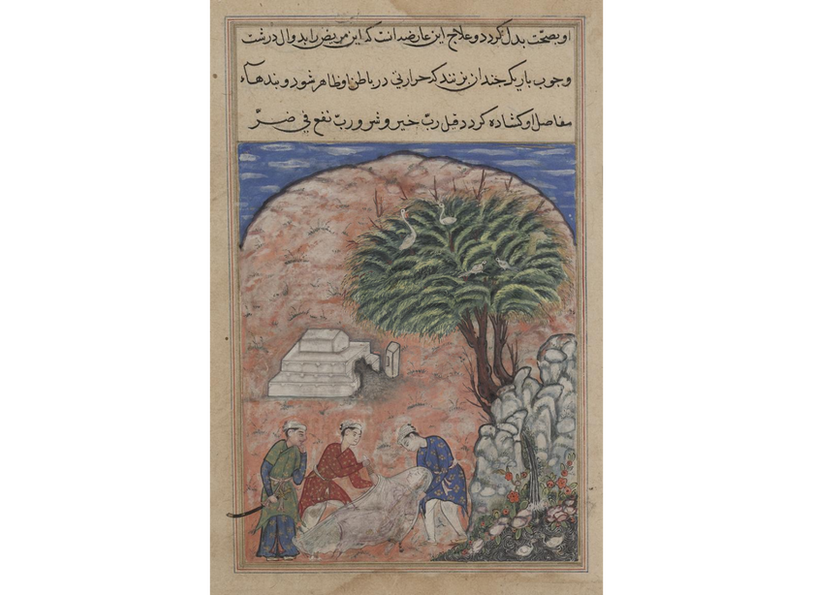 او بصحّت بدل کردد و علاج این عارضه آنست که این مریض را بدوال درشت
و چوب باریک چندان بزنند که حرارتی در باطن او ظاهر شود و بندهاء
مفاصل او کشاده کردد قل ربّ خیر و شر و ربّ نفع فی ضرّ